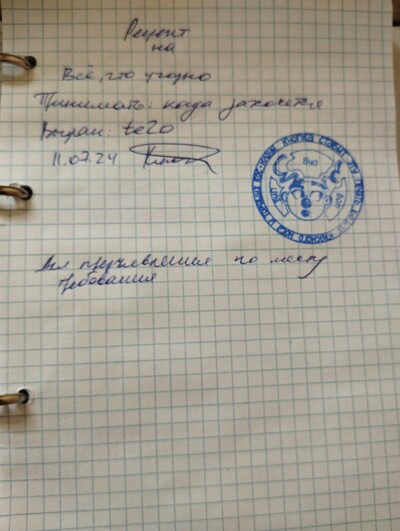 Рецепт
на
Всё, что угодно
Принимать: когда захочется
Выдан: te2o
11.07.24
Для предъявления по месту
требования